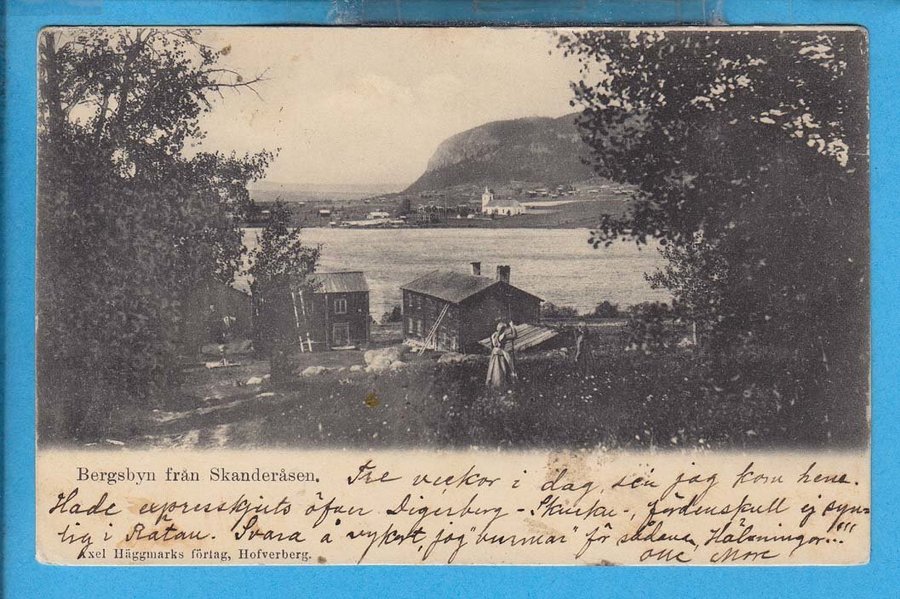 Bergsbyn från Skanderåsen. Tre veckor i dag, sen jag kom hem.
Hade expresskjuts öfver Digerberg-Skurku-, fördenskull ej syn-
lig i Rätan. Svara å vykort, jag "vurmar" för sådana, Hälsningar...
Axel Häggmarks förlag, Hofverberg.